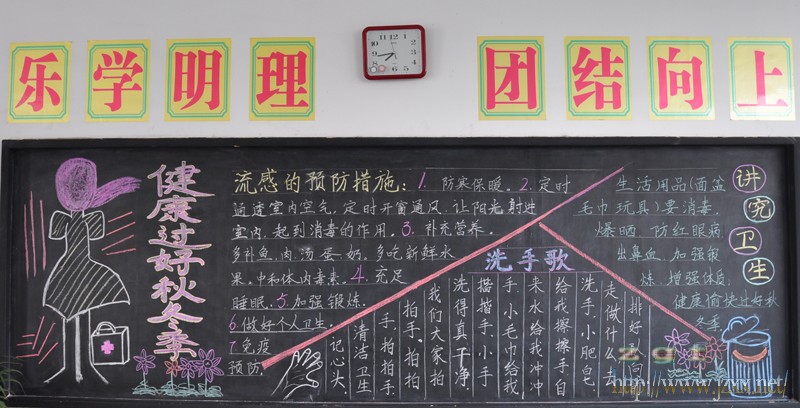 乐学明理
团结向上
健康过好秋冬季
流感的预防措施：1.防寒保暖。2.定时
通透室内空气，定时开窗通风，让阳光射进
室内，起到消毒的作用。3.补充营养。
多补鱼、肉、汤、蛋、奶，多吃新鲜水
果。中和体内毒素。4.充足
睡眠。5.加强锻炼。
6.做好个人卫生。
7.免疫
预防。
洗手歌
排好队，向
走做什么？
洗手，小肥皂
给我擦擦手，自
来水给我冲冲
手，小毛巾给我
擦擦手，小手
洗得真干净，
我们大家拍
拍手，拍拍
手，拍拍手，
清洁卫生
记心头。
讲究卫生
生活用品（面盆
毛巾 玩具）要消毒，
爆晒 防红眼病
出鼻血，加强锻
炼，增强体质，
健康愉快过好秋
冬季
http://www.jzxx.net